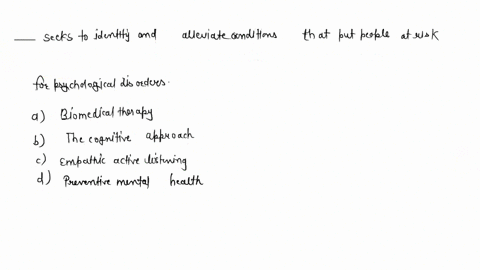 ____ seeks to identity and alleviate conditions that put people at risk
for psychological disorders.
a) Biomedical therapy
b) The cognitive approach
c) Empathic active listening
d) Preventive mental health